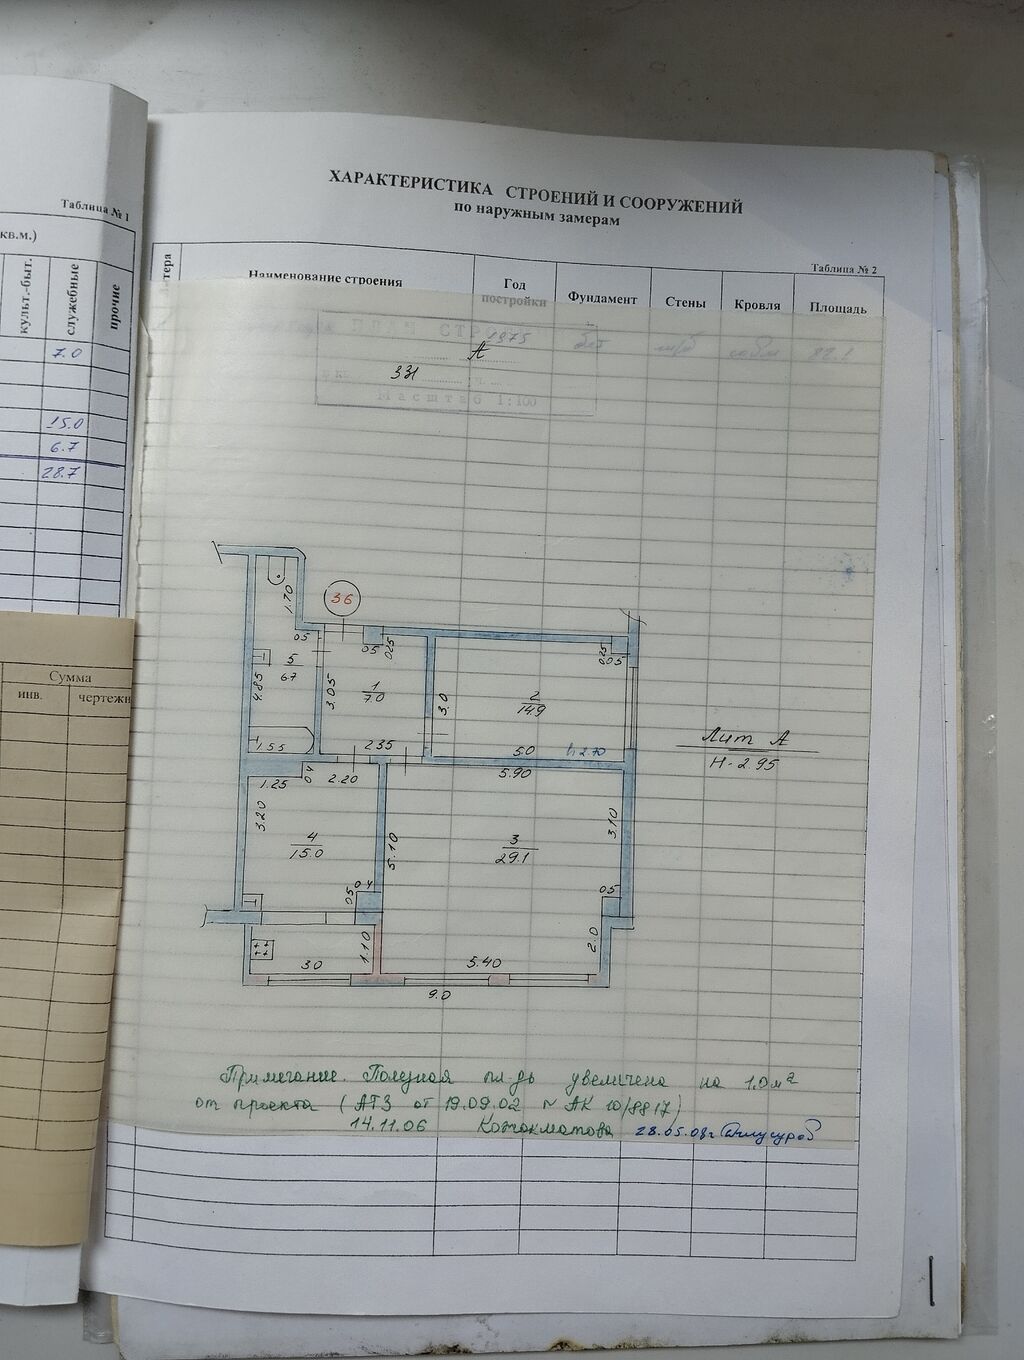 Таблица № 1
кв.м.)
культ.-быт.
служебные
прочие
7.0
15.0
6.7
28.7
Сумма
инв.
чертежн
ХАРАКТЕРИСТИКА СТРОЕНИЙ И СООРУЖЕНИЙ
по наружным замерам
Таблица № 2
Наименование строения
Год постройки
Фундамент
Стены
Кровля
Площадь
ПЛАН
1975
А
331
Масштаб 1:100
82.1
36
1.70
05
05
025
025
005
5
6.7
4.85
3.05
1
7.0
3.0
2
14.9
1.55
2.35
5.0
h 2.70
5.90
Лит А
H-2.95
1.25
04
2.20
3.20
4
15.0
5.10
3
29.1
3.10
04
05
05
1.10
2.0
3.0
5.40
9.0
Примечание. Полезная пл-дь увеличена на 1.0 м²
от проекта (АТЗ от 19.09.02 № АК 10/8817)
14.11.06 Кожокматова 28.05.08г